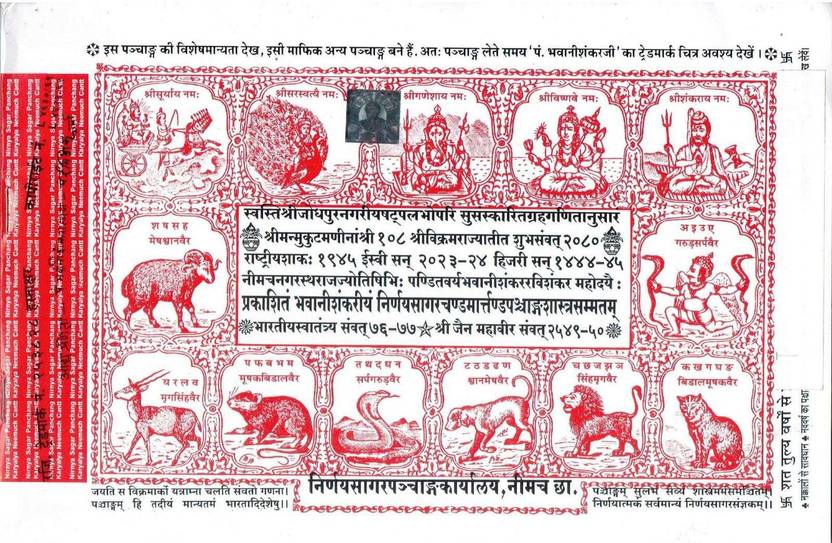 ❇ इस पञ्चाङ्ग की विशेषमान्यता देख, इसी माफिक अन्य पञ्चाङ्ग बने हैं. अतः पञ्चाङ्ग लेते समय 'पं. भवानीशंकरजी' का ट्रेडमार्क चित्र अवश्य देखें । ❇
श्रीसूर्याय नमः
श्रीसरस्वत्यै नमः
श्रीगणेशाय नमः
श्रीविष्णवे नमः
श्रीशंकराय नमः
Nirnya Sagar Panchang Karyalya Neemuch Cantt
स्वस्तिश्रीजोधपुरनगरीयषट्पलभोपरि सुसंस्कारितग्रहगणितानुसार
श्रीमन्मुकुटमणीनांश्री १०८ श्रीविक्रमराज्यातीत शुभसंवत् २०८०
राष्ट्रीयशाकः १९४५ ईस्वी सन् २०२३-२४ हिजरी सन् १४४४-४५
नीमचनगरस्थराजज्योतिषिभिः पण्डितवर्यभवानीशंकररविशंकर महोदयैः
प्रकाशितं भवानीशंकरीयं निर्णयसागरचण्डमार्त्तण्डपञ्चाङ्गशास्त्रसम्मतम्
❋भारतीयस्वातंत्र्य संवत् ७६-७७ ☆ श्री जैन महावीर संवत् २५४९-५०❋
श ष स ह
मेषश्वानवैर
अ इ उ ए
गरुडसर्पवैर
य र ल व
मृगसिंहवैर
प फ ब भ म
मूषकबिडालवैर
त थ द ध न
सर्पगरुडवैर
ट ठ ड ढ ण
श्वानमेषवैर
च छ ज झ ञ
सिंहमृगवैर
क ख ग घ ङ
बिडालमूषकवैर
निर्णयसागरपञ्चाङ्गकार्यालय, नीमच छा.
जयति स विक्रमार्को यन्नाम्ना चलति संवतो गणना।
पञ्चाङ्गम् हि तदीयं मान्यतमं भारतादिदेशेषु।।
पञ्चाङ्गम् सुलभं सेव्यं शास्त्रमर्मसमञ्चितम्
निर्णयात्मकं सर्वमान्यं निर्णयसागरसंज्ञकम्।।
卐 शत तुल्य वर्षों से
नकालों से सावधान ◆ नववर्ष का